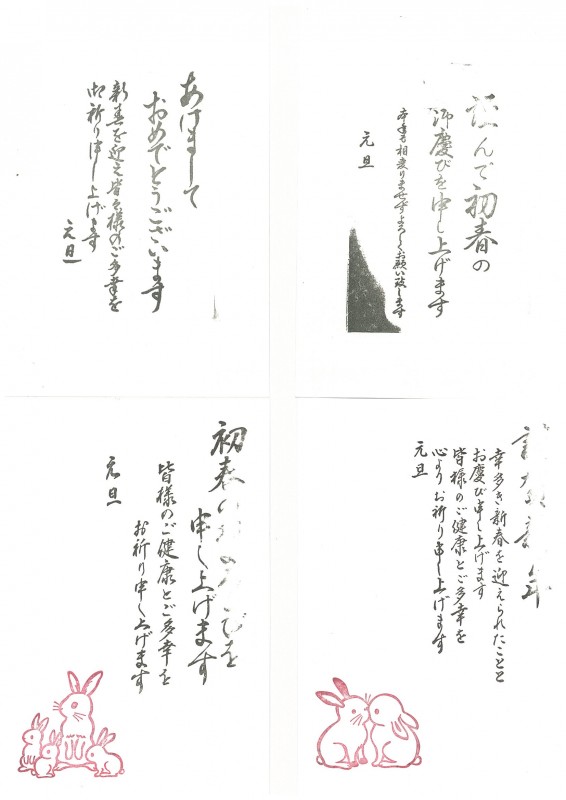 謹んで初春の
御慶びを申し上げます
本年も相変りませずよろしくお願い致します
元旦
あけまして
おめでとうございます
新春を迎え皆々様のご多幸を
御祈り申し上げます
元旦
年
幸多き新春を迎えられたことと
お慶び申し上げます
皆様のご健康とご多幸を
心よりお祈り申し上げます
元旦
初春の びを
申し上げます
皆様のご健康とご多幸を
お祈り申し上げます
元旦